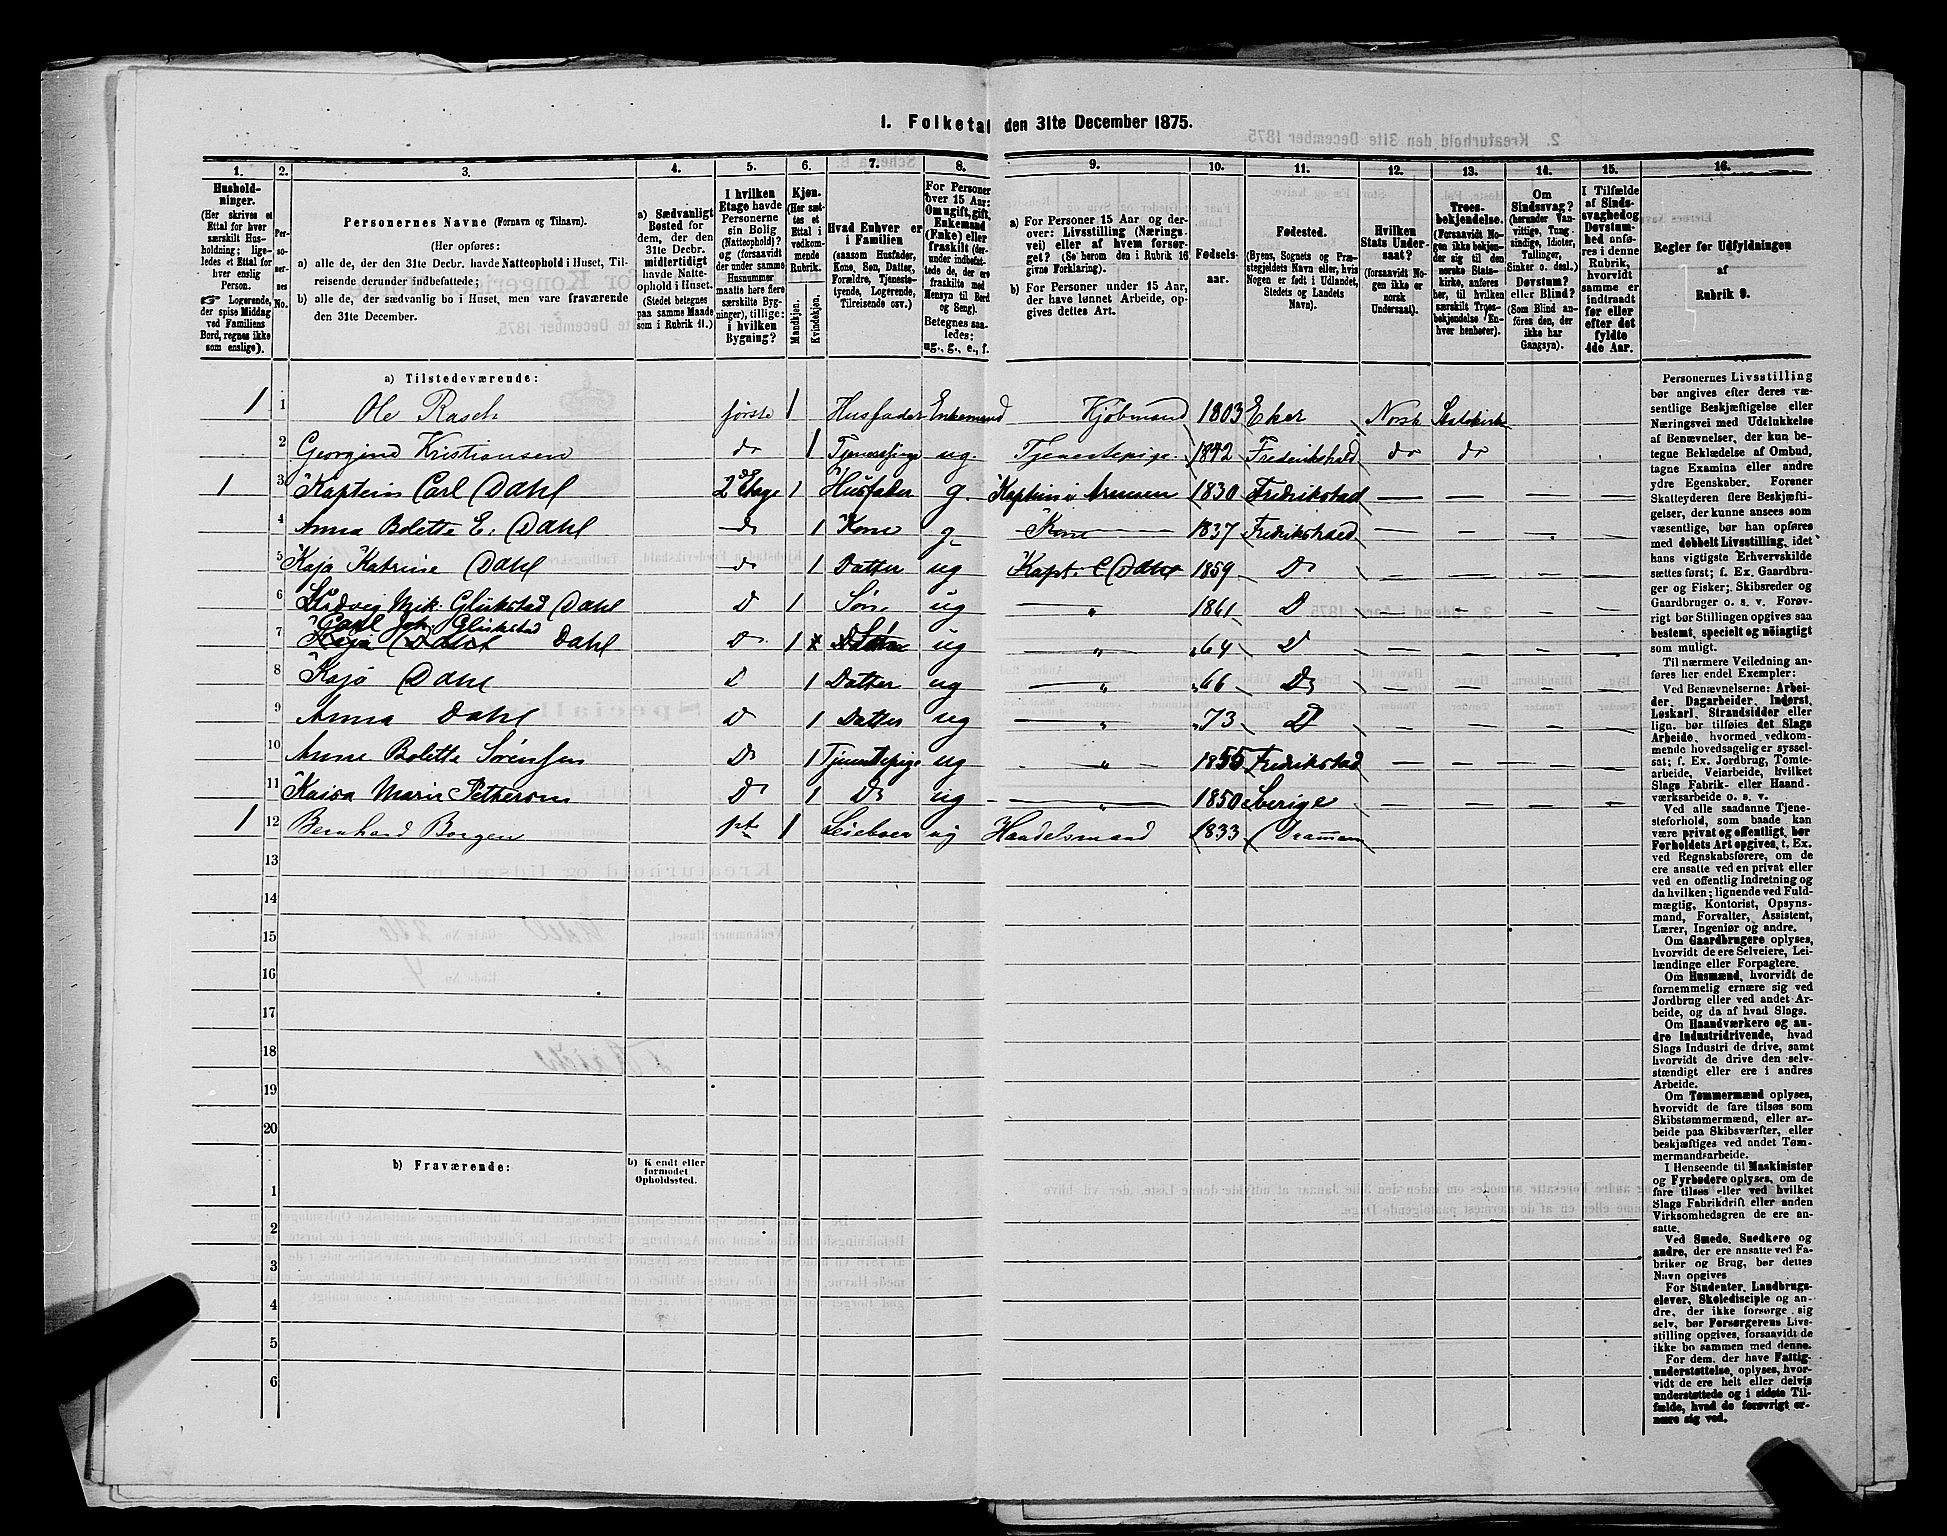 1. Folketal den 31te December 1875.
1.
2.
3.
4.
5.
6.
7.
8.
9.
10.
11.
12.
13.
14.
15.
16.
Husholdninger.
(Her skrives et Ettal for hver særskilt Husholdning; ligeledes et Ettal for hver enslig Person.
☞ Logerende, der spise Middag ved Familiens Bord, regnes ikke som enslige).
Personernes No.
Personernes Navne (Fornavn og Tilnavn).
(Her opføres:
a) alle de, der den 31te Decbr. havde Natteophold i Huset, Tilreisende derunder indbefattede;
b) alle de, der sædvanlig bo i Huset, men vare fraværende den 31te December.
a) Sædvanligt Bosted for dem, der den 31te Decbr. midlertidigt havde Natteophold i Huset.
(Stedet betegnes paa samme Maade som i Rubrik 11.)
I hvilken Etage havde Personerne sin Bolig (Natteophold)? og (forsaavidt der under samme Husnummer maatte høre flere særskilte Bygninger), tillige: i hvilken Bygning?
Kjøn.
(Her sættes et Ettal i vedkommende Rubrik.
Mandkjøn.
Kvindekjøn.
Hvad Enhver er i Familien
(saasom Husfader, Kone, Søn, Datter, Forældre, Tjenestetyende, Logerende, Tilreisende osv.)
For Personer over 15 Aar: Om ugift, gift, Enkemand (Enke) eller fraskilt (derunder indbefattede de, der ere fraskilte med Hensyn til Bord og Seng).
Betegnes saaledes: ug., g., e., f.
a) For Personer 15 Aar og derover: Livsstilling (Næringsvei) eller af hvem forsørget? (Se herom den i Rubrik 16 givne Forklaring).
b) For Personer under 15 Aar, der have lønnet Arbeide, opgives dettes Art.
Fødselsaar.
Fødested.
(Byens, Sognets og Præstegjeldets Navn eller, hvis Nogen er født i Udlandet, Stedets og Landets Navn).
Hvilken Stats Undersaat?
(forsaavidt Nogen ikke er norsk Undersaat).
Troesbekjendelse.
(Forsaavidt Nogen ikke bekjender sig til den norske Statskirke, anføres her, til hvilken særskilt Troesbekjendelse Enhver henhører).
Om Sindssvag? (herunder Vanvittige, Tungsindige, Idioter, Tullinger, Sinker o. desl.) Døvstum? eller Blind? (Som Blind anføres den, der ikke har Gangsyn).
I Tilfælde af Sindssvaghed og Døvstumhed anføres i denne Rubrik, hvorvidt samme er indtraadt før eller efter det fyldte 4de Aar.
Regler for Udfyldningen
af
Rubrik 9.
a) Tilstedeværende:
1 1 Ole Rasch første 1 Husfader Enkemand Kjøbmand 1803 Eker Norsk Statskirk
2 Georgine Kristiansen do 1 Tjenestepige ug. Tjenestepige 1842 Frederikshald do do
1 3 Kaptein Carl Dahl 2 Etage 1 Husfader g. Kaptein i Armeen 1830 Fredrikstad — — — —
4 Anna Bolette E. Dahl do 1 Kone g. Kone 1837 Fredrikshald — — — —
5 Kaja Katrine Dahl do 1 Datter ug Kapt. C Dahl 1859 Do — — — —
6 Ludvig Mik. Glükstad Dahl D 1 Søn ug — „ 1861 D — — — —
Carl Joh. Glückstad
7 Kaja Dahl Dahl Do 1 x Datter Søn ug — „ „64 D — — — —
8 Kaja Dahl D 1 Datter ug — „ „66 Do — — — —
9 Anna Dahl D 1 Datter ug — „ „73 D — — — —
10 Anne Bolette Sørensen Do 1 Tjenestepige ug — „ 1855 Fredrikstad — — — —
11 Kaisa Marie Petterson Do 1 Do ug — „ 1850 Sverige — — — —
1 12 Bernhard Borgen 1st 1 Leieboer ug Handelsmand 1833 Drammen
13
14
15
16
17
18
19
20
b) Fraværende:
b) Kjendt eller formodet Opholdssted.
1
2
3
4
5
6
Personernes Livsstilling
bør angives efter deres væ-
sentlige Beskjæftigelse eller
Næringsvei med Udelukkelse
af Benævnelser, der kun be-
tegne Beklædelse af Ombud,
tagne Examina eller andre
ydre Egenskaber. Forener
Skatteyderen flere Beskjæfti-
gelser, der kunne ansees som
væsentlige, bør han opføres
med dobbelt Livsstilling, idet
hans vigtigste Erhvervskilde
sættes først; f. Ex. Gaardbru-
ger og Fisker; Skibsreder og
Gaardbruger o. s. v. Forøv-
rigt bør Stillingen opgives saa
bestemt, specielt og nøiagtigt
som muligt.
Til nærmere Veiledning an-
føres her endel Exempler:
Ved Benævnelserne: Arbei-
der, Dagarbeider, Inderst,
Løskarl, Strandsidder eller
lign. bør tilføies det Slags
Arbeide, hvormed vedkom-
mende hovedsagelig er syssel-
sat; f. Ex. Jordbrug, Tomte-
arbeide, Veiarbeide, hvilket
Slags Fabrik- eller Haand-
værksarbeide o. s. v.
Ved alle saadanne Tjene-
steforhold, som baade kan
være privat og offentligt, bør
Forholdets Art opgives, t. Ex.
ved Regnskabsførere, om de
ere ansatte ved en privat eller
ved en offentlig Indretning og
da hvilken; lignende ved Fuld-
mægtig, Kontorist, Opsyns-
mand, Forvalter, Assistent,
Lærer, Ingeniør og andre.
Om Gaardbrugere oplyses,
hvorvidt de ere Selveiere, Lei-
lændinge eller Forpagtere.
Om Husmænd, hvorvidt de
fornemmelig ernære sig ved
Jordbrug eller ved andet Ar-
beide, og da af hvad Slags.
Om Haandværkere og an-
dre Industridrivende, hvad
Slags Industri de drive, samt
hvorvidt de drive den selv-
stændigt eller ere i andres
Arbeide.
Om Tømmermænd oplyses,
hvorvidt de fare tilsøs som
Skibstømmermænd, eller ar-
beide paa Skibsværfter, eller
beskjæftiges ved andet Tøm-
mermandsarbeide.
I Henseende til Maskinister
og Fyrbødere oplyses, om de
fare tilsøs eller ved hvilket
Slags Fabrikdrift eller anden
Virksomhedsgren de ere an-
satte.
Ved Smede, Snedkere og
andre, der ere ansatte ved Fa-
briker og Brug, bør dettes
Navn opgives
For Studenter, Landbrugs-
elever, Skoledisciple og an-
dre, der ikke forsørge sig
selv, bør Forsørgerens Livs-
stilling opgives, forsaavidt de
ikke bo sammen med denne.
For dem, der have Fattig-
understøttelse, oplyses, hvor-
vidt de ere helt eller delvis
understøttede og i sidste Til-
fælde, hvad de forøvrigt er-
nære sig ved.